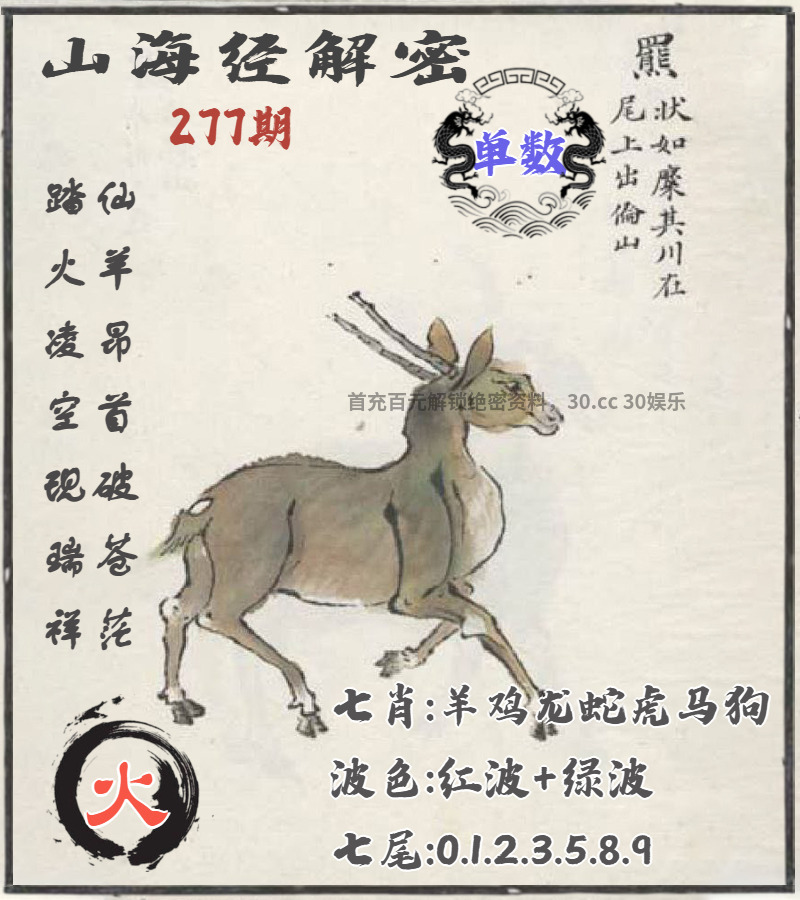 山海经解密
277期
单数
羆
状如麋其川在
尾上出倫山
仙羊昂首破苍茫
踏火凌空现瑞祥
首充百元解锁绝密资料，30.cc 30娱乐
七肖:羊鸡龙蛇虎马狗
波色:红波+绿波
七尾:0.1.2.3.5.8.9
火